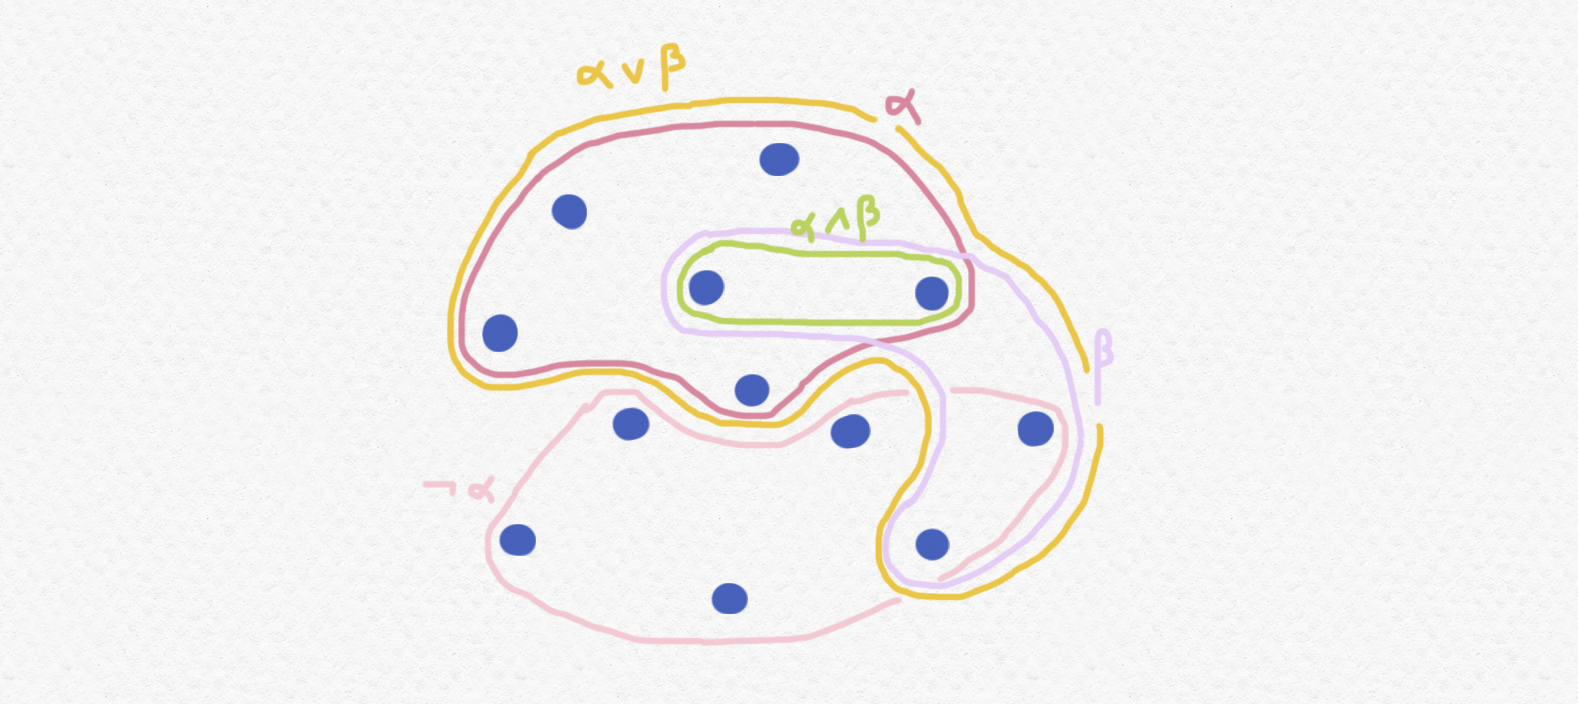 α ∨ β
α
α ∧ β
β
¬ α